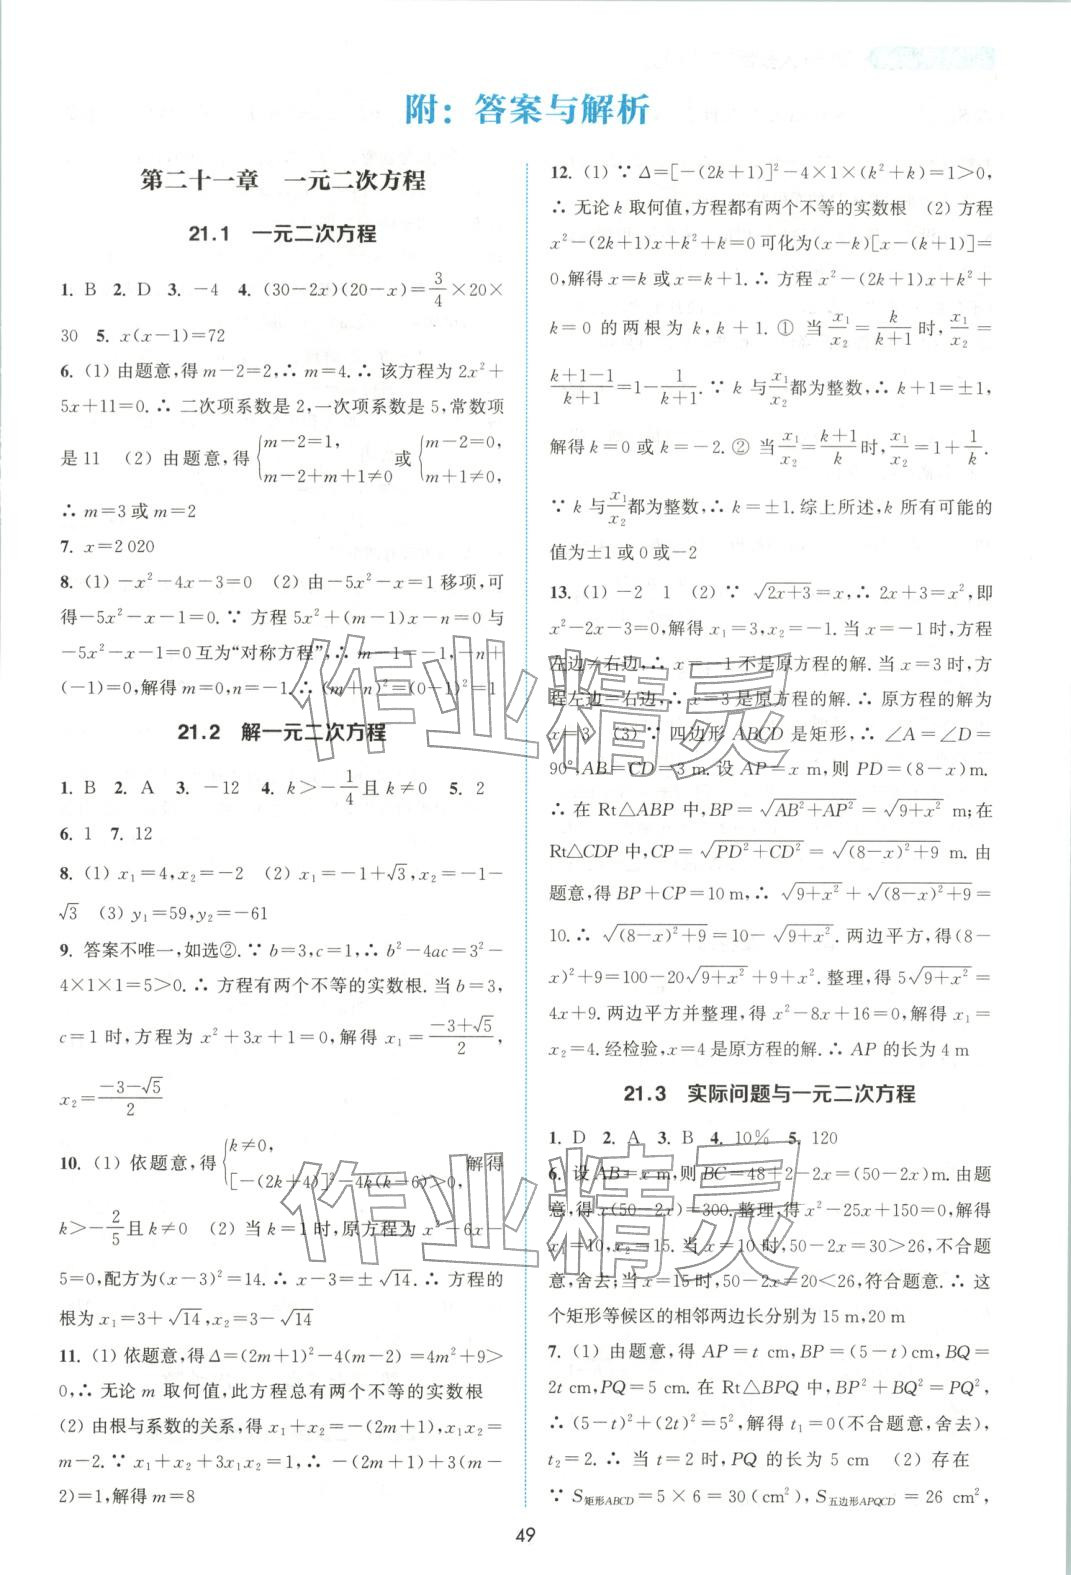 附：答案与解析
第二十一章　一元二次方程
21.1　一元二次方程
1. B 2. D 3. －4 4. (30－2x)(20－x)＝3/4×20×
30 5. x(x－1)＝72
6. (1) 由题意,得 m－2＝2,∴ m＝4.∴ 该方程为 2x²＋
5x＋11＝0.∴ 二次项系数是 2,一次项系数是 5,常数项
是11 (2) 由题意,得{m－2＝1, m－2＋m＋1≠0 或{m－2＝0, m＋1≠0,
∴ m＝3 或 m＝2
7. x＝2 020
8. (1) －x²－4x－3＝0 (2) 由－5x²－x＝1 移项,可
得－5x²－x－1＝0.∵ 方程 5x²＋(m－1)x－n＝0 与
－5x²－x－1＝0 互为“对称方程”,∴ m－1＝－1,－n＋
(－1)＝0,解得 m＝0,n＝－1.∴ (m＋n)²＝(0－1)²＝1
21.2　解一元二次方程
1. B 2. A 3. －12 4. k＞－1/4且 k≠0 5. 2
6. 1 7. 12
8. (1) x₁＝4,x₂＝－2 (2) x₁＝－1＋√3,x₂＝－1－
√3 (3) y₁＝59,y₂＝－61
9. 答案不唯一,如选②.∵ b＝3,c＝1,∴ b²－4ac＝3²－
4×1×1＝5＞0.∴ 方程有两个不等的实数根. 当 b＝3,
c＝1 时,方程为 x²＋3x＋1＝0,解得 x₁＝(－3＋√5)/2,
x₂＝(－3－√5)/2
10. (1) 依题意,得{k≠0, [－(2k＋4)]²－4k(k－6)＞0, 解得
k＞－2/5且 k≠0 (2) 当 k＝1 时,原方程为 x²－6x－
5＝0,配方为(x－3)²＝14.∴ x－3＝±√14.∴ 方程的
根为 x₁＝3＋√14,x₂＝3－√14
11. (1) 依题意,得 Δ＝(2m＋1)²－4(m－2)＝4m²＋9＞
0,∴ 无论 m 取何值,此方程总有两个不等的实数根
(2) 由根与系数的关系,得 x₁＋x₂＝－(2m＋1),x₁x₂＝
m－2.∵ x₁＋x₂＋3x₁x₂＝1,∴ －(2m＋1)＋3(m－
2)＝1,解得 m＝8
12. (1) ∵ Δ＝[－(2k＋1)]²－4×1×(k²＋k)＝1＞0,
∴ 无论 k 取何值,方程都有两个不等的实数根 (2) 方程
x²－(2k＋1)x＋k²＋k＝0 可化为(x－k)[x－(k＋1)]＝
0,解得 x＝k 或 x＝k＋1.∴ 方程 x²－(2k＋1)x＋k²＋
k＝0 的两根为 k,k＋1. ① 当x₁/x₂＝k/(k＋1)时,x₁/x₂＝
(k＋1－1)/(k＋1)＝1－1/(k＋1).∵ k 与x₁/x₂都为整数,∴ k＋1＝±1,
解得 k＝0 或 k＝－2. ② 当x₁/x₂＝(k＋1)/k时,x₁/x₂＝1＋1/k.
∵ k 与x₁/x₂都为整数,∴ k＝±1. 综上所述,k 所有可能的
值为±1 或 0 或－2
13. (1) －2 1 (2) ∵ √(2x＋3)＝x,∴ 2x＋3＝x²,即
x²－2x－3＝0,解得 x₁＝3,x₂＝－1. 当 x＝－1 时,方程
左边≠右边,∴ x＝－1 不是原方程的解. 当 x＝3 时,方
程左边＝右边,∴ x＝3 是原方程的解.∴ 原方程的解为
x＝3 (3) ∵ 四边形 ABCD 是矩形,∴ ∠A＝∠D＝
90°,AB＝CD＝3 m. 设 AP＝x m,则 PD＝(8－x)m.
∴ 在 Rt△ABP 中,BP＝√(AB²＋AP²)＝√(9＋x²) m;在
Rt△CDP 中,CP＝√(PD²＋CD²)＝√((8－x)²＋9) m. 由
题意,得 BP＋CP＝10 m,∴ √(9＋x²)＋√((8－x)²＋9)＝
10.∴ √((8－x)²＋9)＝10－√(9＋x²). 两边平方,得(8－
x)²＋9＝100－20√(9＋x²)＋9＋x². 整理,得 5√(9＋x²)＝
4x＋9. 两边平方并整理,得 x²－8x＋16＝0,解得 x₁＝
x₂＝4. 经检验,x＝4 是原方程的解.∴ AP 的长为 4 m
21.3　实际问题与一元二次方程
1. D 2. A 3. B 4. 10% 5. 120
6. 设 AB＝x m,则 BC＝48＋2－2x＝(50－2x)m. 由题
意,得 x(50－2x)＝300. 整理,得 x²－25x＋150＝0,解得
x₁＝10,x₂＝15. 当 x＝10 时,50－2x＝30＞26,不合题
意,舍去;当 x＝15 时,50－2x＝20＜26,符合题意.∴ 这
个矩形等候区的相邻两边长分别为 15 m,20 m
7. (1) 由题意,得 AP＝t cm,BP＝(5－t)cm,BQ＝
2t cm,PQ＝5 cm. 在 Rt△BPQ 中,BP²＋BQ²＝PQ²,
∴ (5－t)²＋(2t)²＝5²,解得 t₁＝0(不合题意,舍去),
t₂＝2.∴ 当 t＝2 时,PQ 的长为 5 cm (2) 存在
∵ S矩形ABCD＝5×6＝30(cm²),S五边形APQCD＝26 cm²,
49
作业精灵
作业精灵